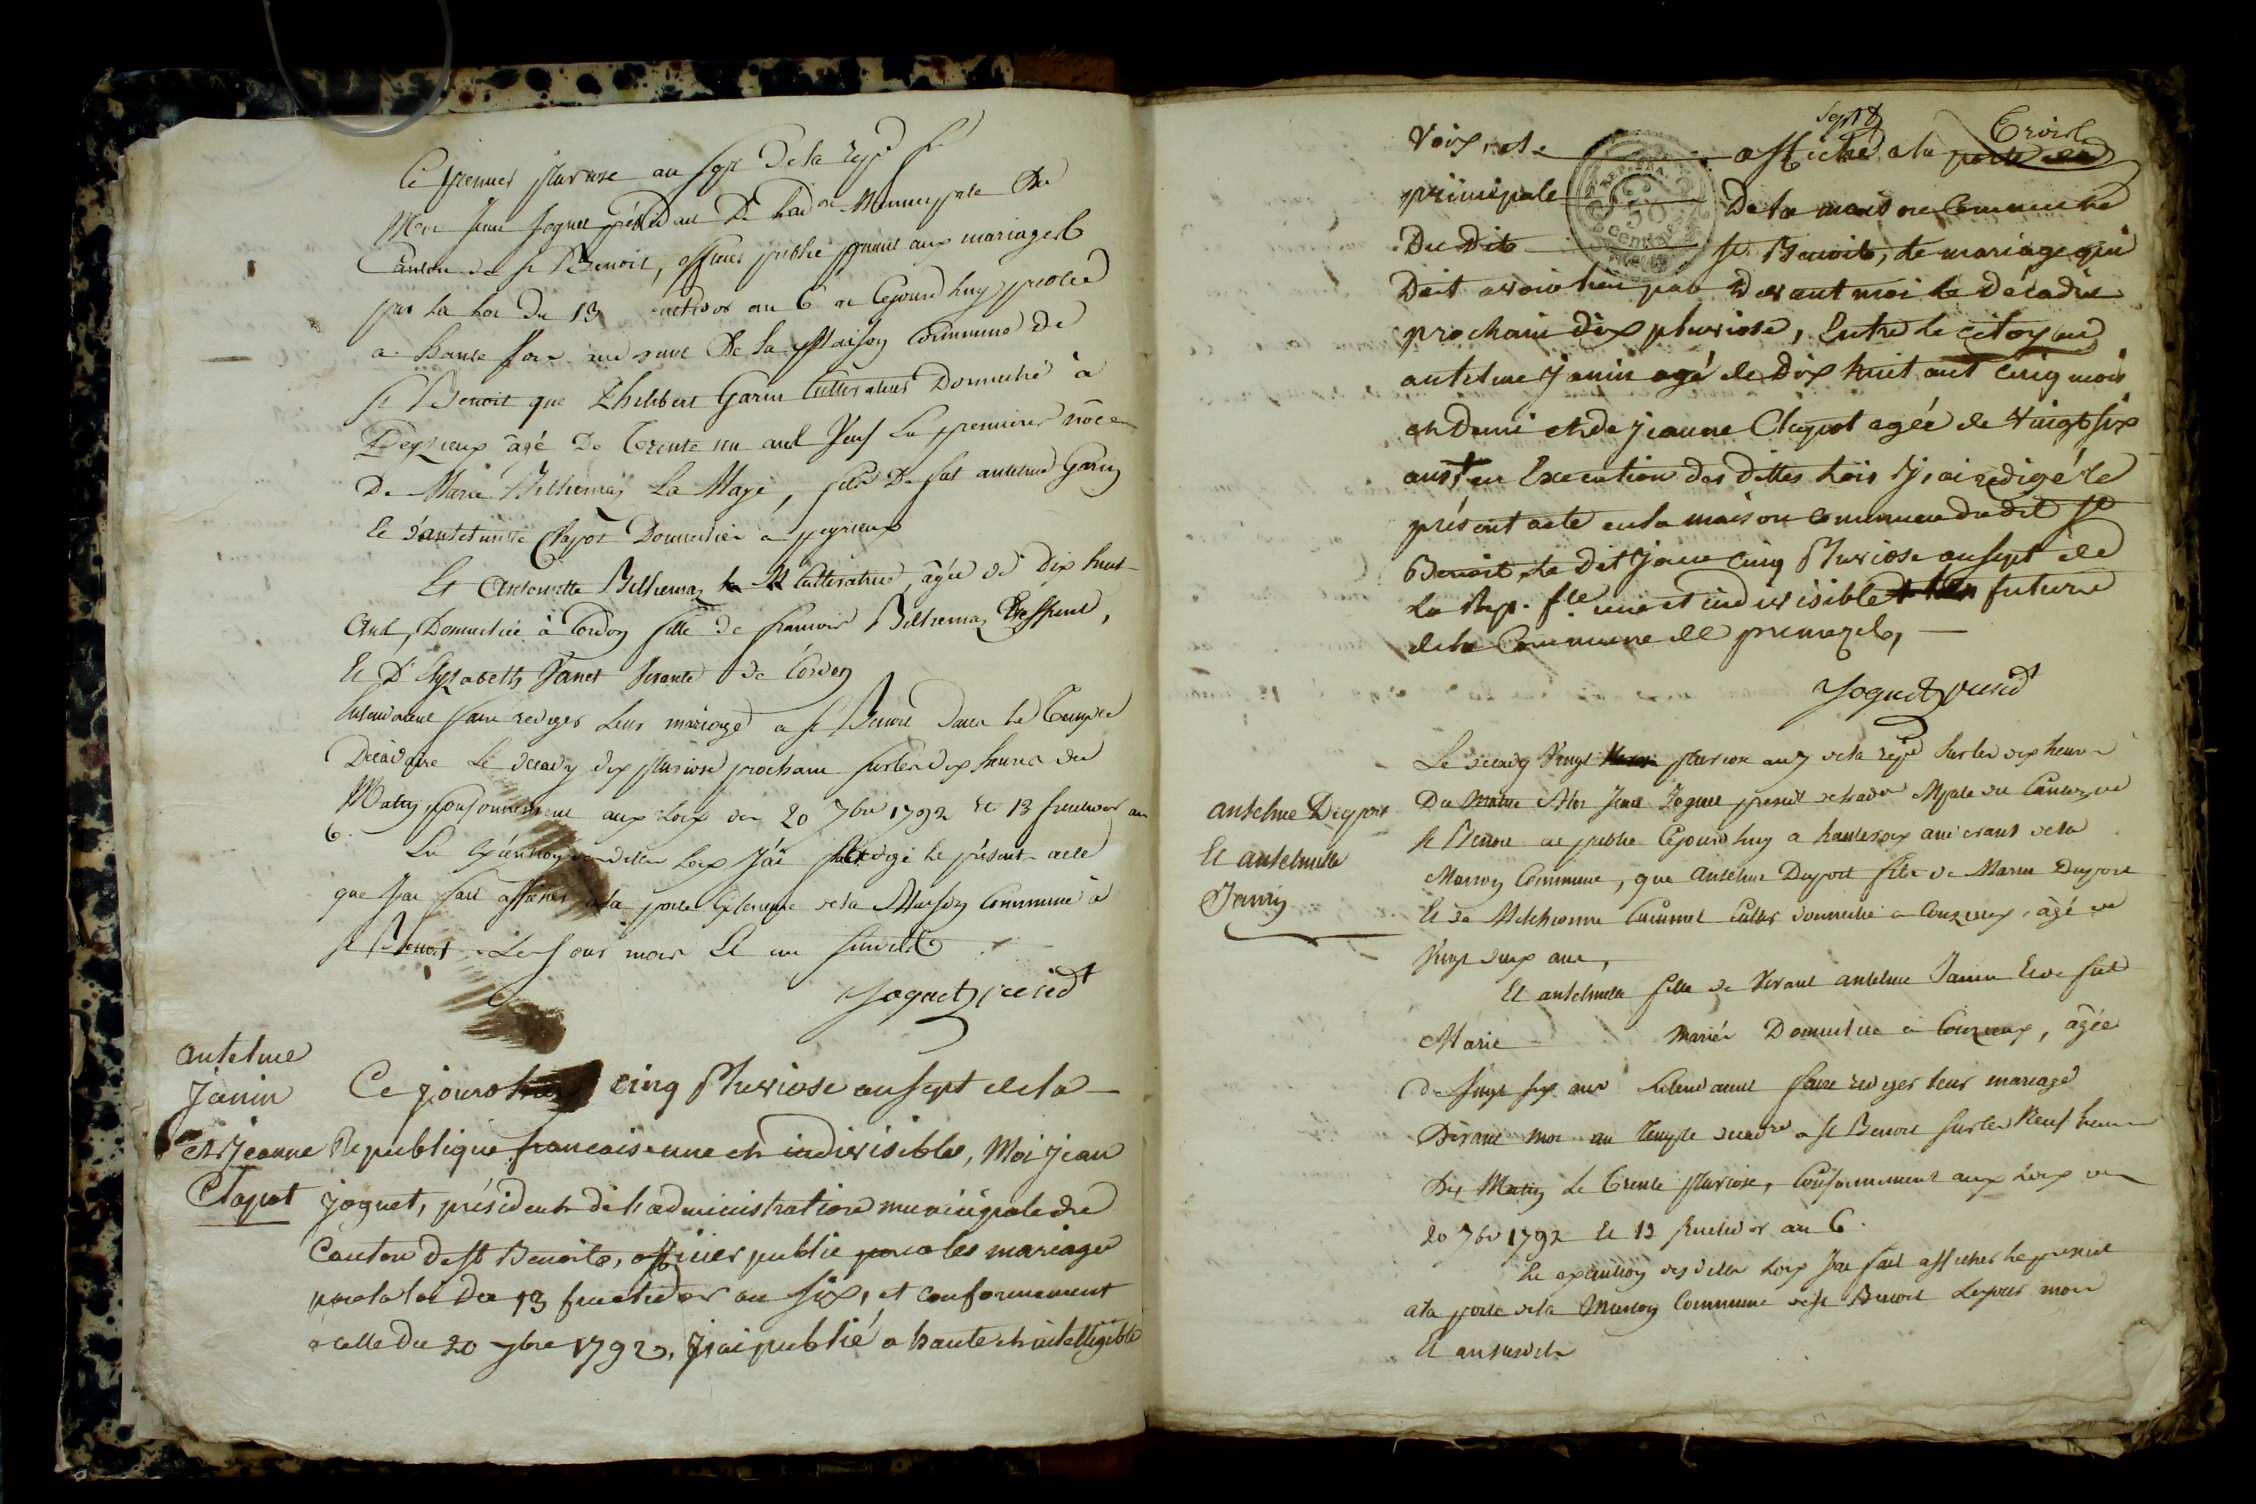 Ce premier pluviose an sept de la rep. fr
Moi Jean Joguet président de l'adon Municipale du
Canton de st Benoit, officier public quant aux mariages
par la Loi du 13 fructidor an 6 ai Cejourdhuy publié
a haute voix au devant de la Maison Commune de
st Benoit que Philibert Garin Cultivateur Domicilié à
Peyzieux âgé de trente un ans Veuf en premieres nôces
De Marie Billiemaz La Mage, fils de fut anselme Garin
Et d'antelmette Clapot Domiciliés à peyzieux
Et Antoinette Billiemaz Cultivatrice, âgée de dix huit
Ans, Domiciliée à Cordon fille de françois Billiemaz
Et d'Elyzabeth Janet vivante de Cordon
Entendant faire rediger leur mariage a st Benoit dans le Temple
Décadaire Le decady dix pluviose prochain sur les dix heures du
Matin, conformement aux Loix des 20 7bre 1792 et 13 fructidor an
6.
En Exécution desdites Loix J'ai redigé le présent acte
que J'ai fait afficher à la porte Exterieure de la Maison Commune à
st Benoit. Les Jour mois Et an susdits
Joguet presidt
antelme
Janin
et Jeanne
Clapot
Ce jourd'hui cinq Pluviose an sept de la
Republique francaise une et indivisible, Moi jean
joguet, président de l'administration municipale du
Canton de st Benoit, officier public pour les mariages
par la loi du 13 fructidor an six, et conformement
a celle du 20 7bre 1792, j'ai publié a haute et intelligible
voix, et affiché a la porte
principale De la maison Commune
Du Dit st Benoit, le mariage qui
Doit avoir lieu par Devant moi le décadi
prochain dix pluviose, Entre le citoyen
antelme janin agé de Dix huit ans cinq mois
et Demi et de jeanne Clapot agée de Vingt six
ans + en Execution des dittes Lois j'ai redigé le
présent acte en la maison commune du dit st
Benoit, le Dit jour cinq Pluviose an sept de
la Rep. fse une et indivisible + future
de la Commune de premezel,
Joguet presidt
anselme Duport
Et anselmette
Janin
Le decady Vingt pluviose an 7 de la repe sur les dix heures
Du Matin Moi Jean Joguet presidt de l'adon Mpale du Canton de
st Benoit ai publié Cejourdhuy a haute voix au devant de la
Maison Commune, que Anselme Duport fils de Marin Duport
Et de Melchionne Cultr domicilié a Conzieux, âgé de
Vingt deux ans,
Et anselmette fille de Vivant antelme Janin Et de fut
Marie mariés Domiciliée à Conzieux, âgée
de Vingt six ans Entendant faire rediger leur mariage
Devant moi au Temple decadre a st Benoit sur les Neuf heures
Du Matin Le Trente pluviose, Conformement aux Loix des
20 7bre 1792 Et 13 fructidor an 6.
En execution desdites Loix J'ai fait afficher le present
a la porte de la Maison Commune de st Benoit Les jour mois
Et an susdits